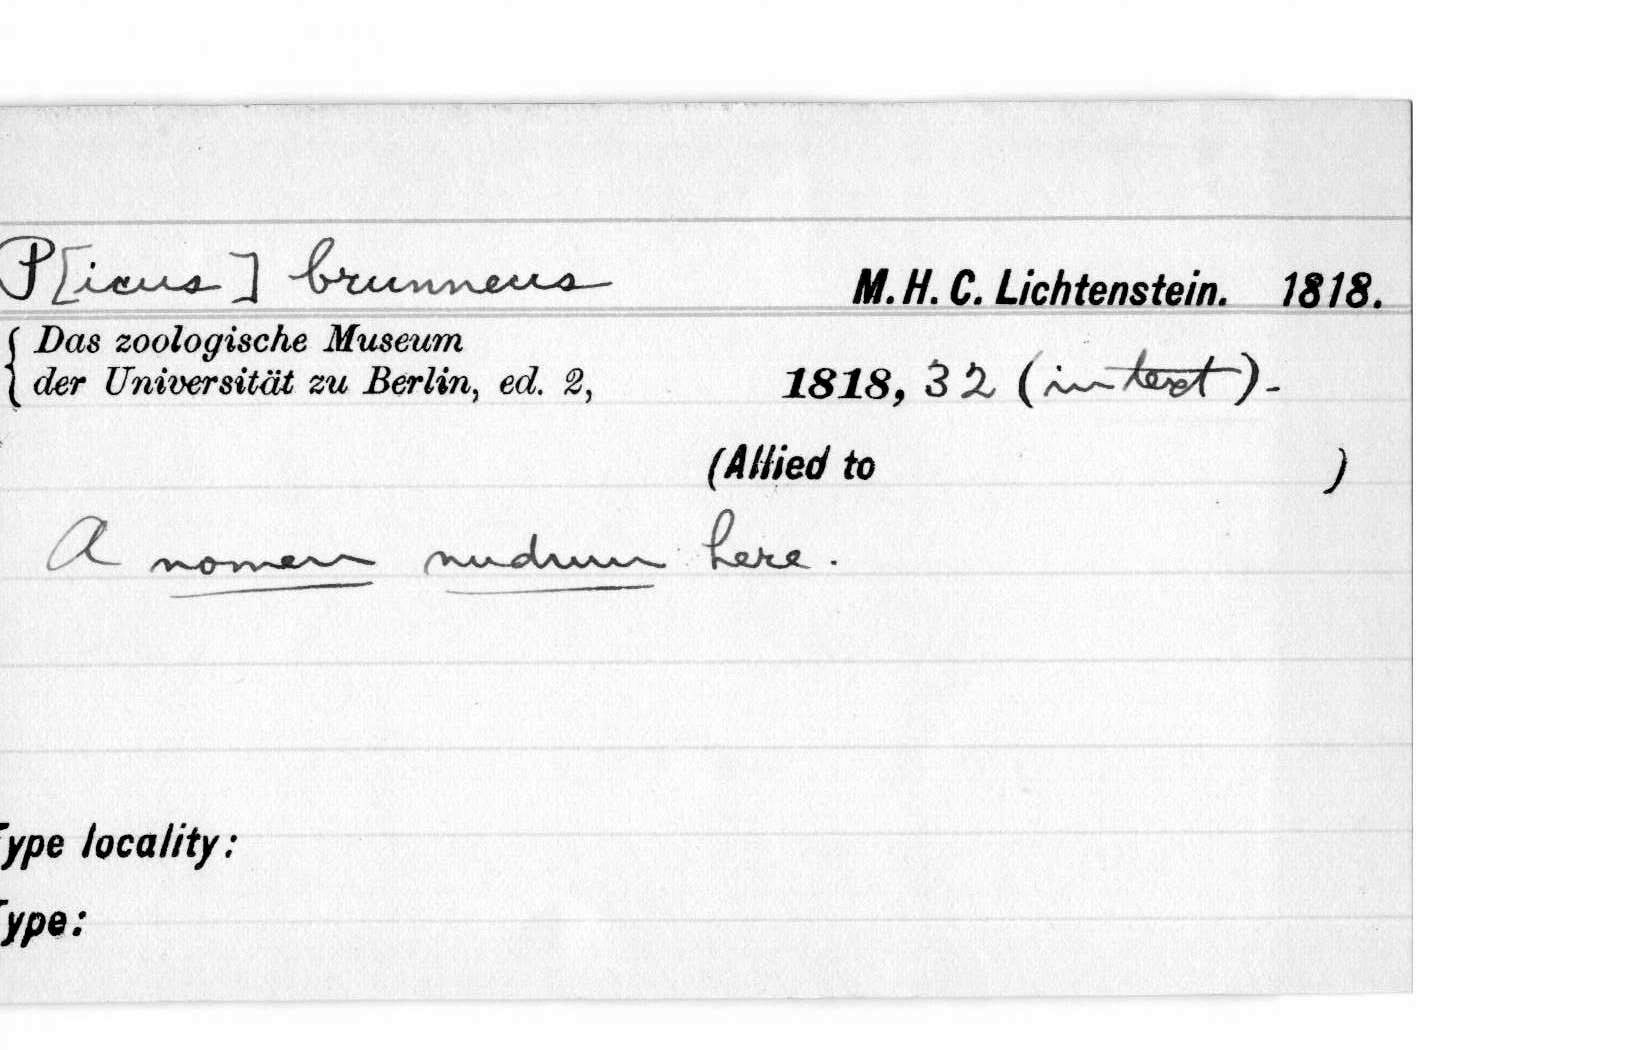 P[icus] brunneus M. H. C. Lichtenstein. 1818.
{ Das zoologische Museum
der Universität zu Berlin, ed. 2, 1818, 32 (in text)-
(Allied to )
A nomen nudum here.
Type locality:
Type: